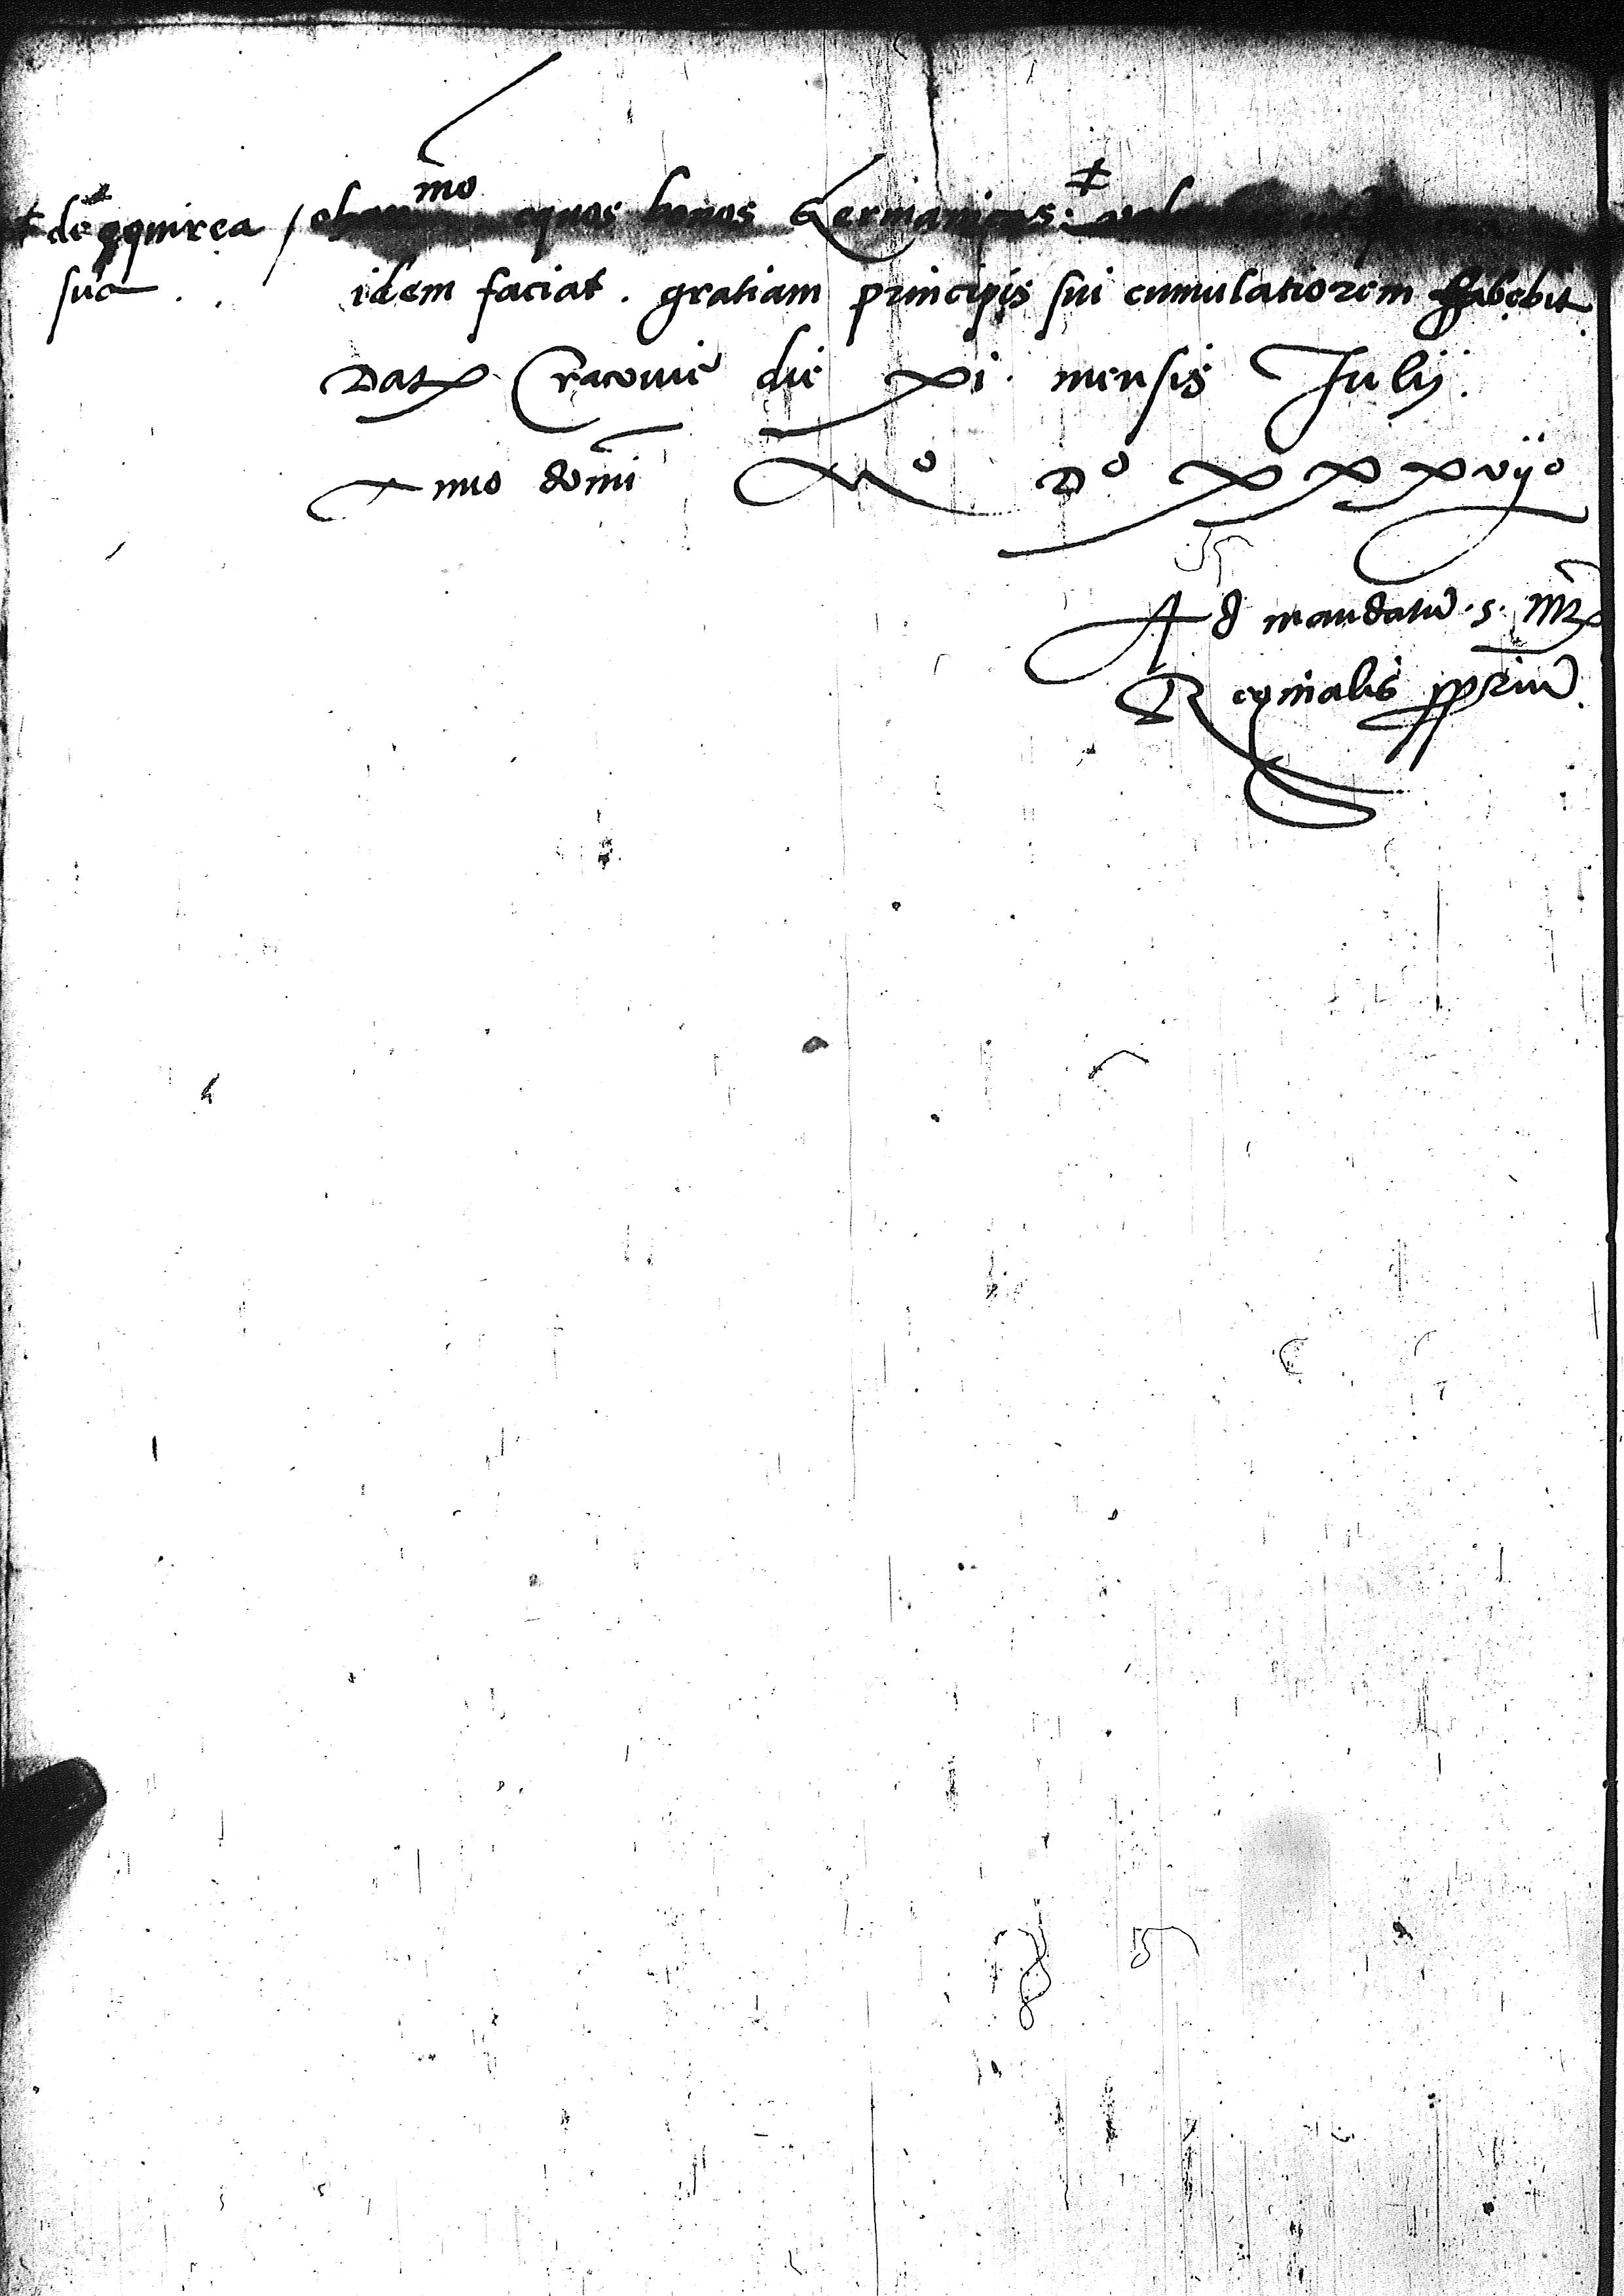 mo
equos bonos Germanicos: ǂ
ǂ de
sua
idem faciat . gratiam principis sui cumulatiorem habebit
Datꝝ Cracovie die xi mensis Julij.
Anno domi Mo Do xxxvijo
Ad mandatū . s . Mtꝝ
Reginalis ppriū.